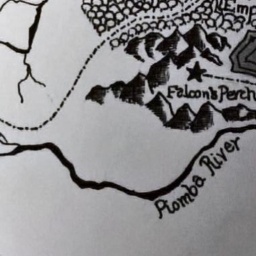 Emp
Falcon's Perch
Piomba River